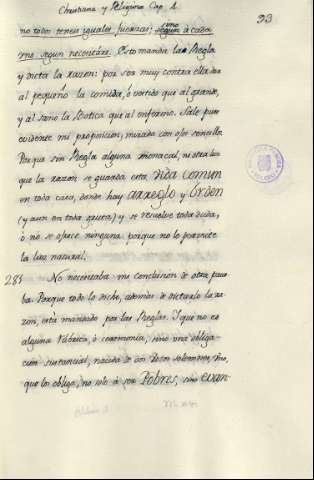 Christiana y Religiosa Cap. 1.
33
no todos teneis iguales fuerzas; sino
segun a cada
uno segun necesitare. Esto manda la Regla
y dicta la razon: por ser muy contra ella dar
al pequeño la comida, ó vestido que al grande,
y al sano la Botica que al enfermo. Sale pues
evidente mi proposicion, mirado con ojos sencillos.
Porque sin Regla alguna monacal, nuestra luz
que la razon se guarda esta vida comun
en toda casa, donde hay arreglo y Orden
(y aun en toda gruta) y se resuelve toda duda,
ó no se ofrece ninguna porque no lo permite
la luz natural.
283 No necesitaba mi conclusion de otra prue-
ba. Porque todo lo dicho, ademas de dictarlo la ra-
zon, está mandado por las Reglas. Y que no es
alguna Rúbrica, ó ceremonia, sino una obliga-
cion sustancial, nacida de un Voto solemne,
que los obliga, no solo á ser Pobres, sino evan-